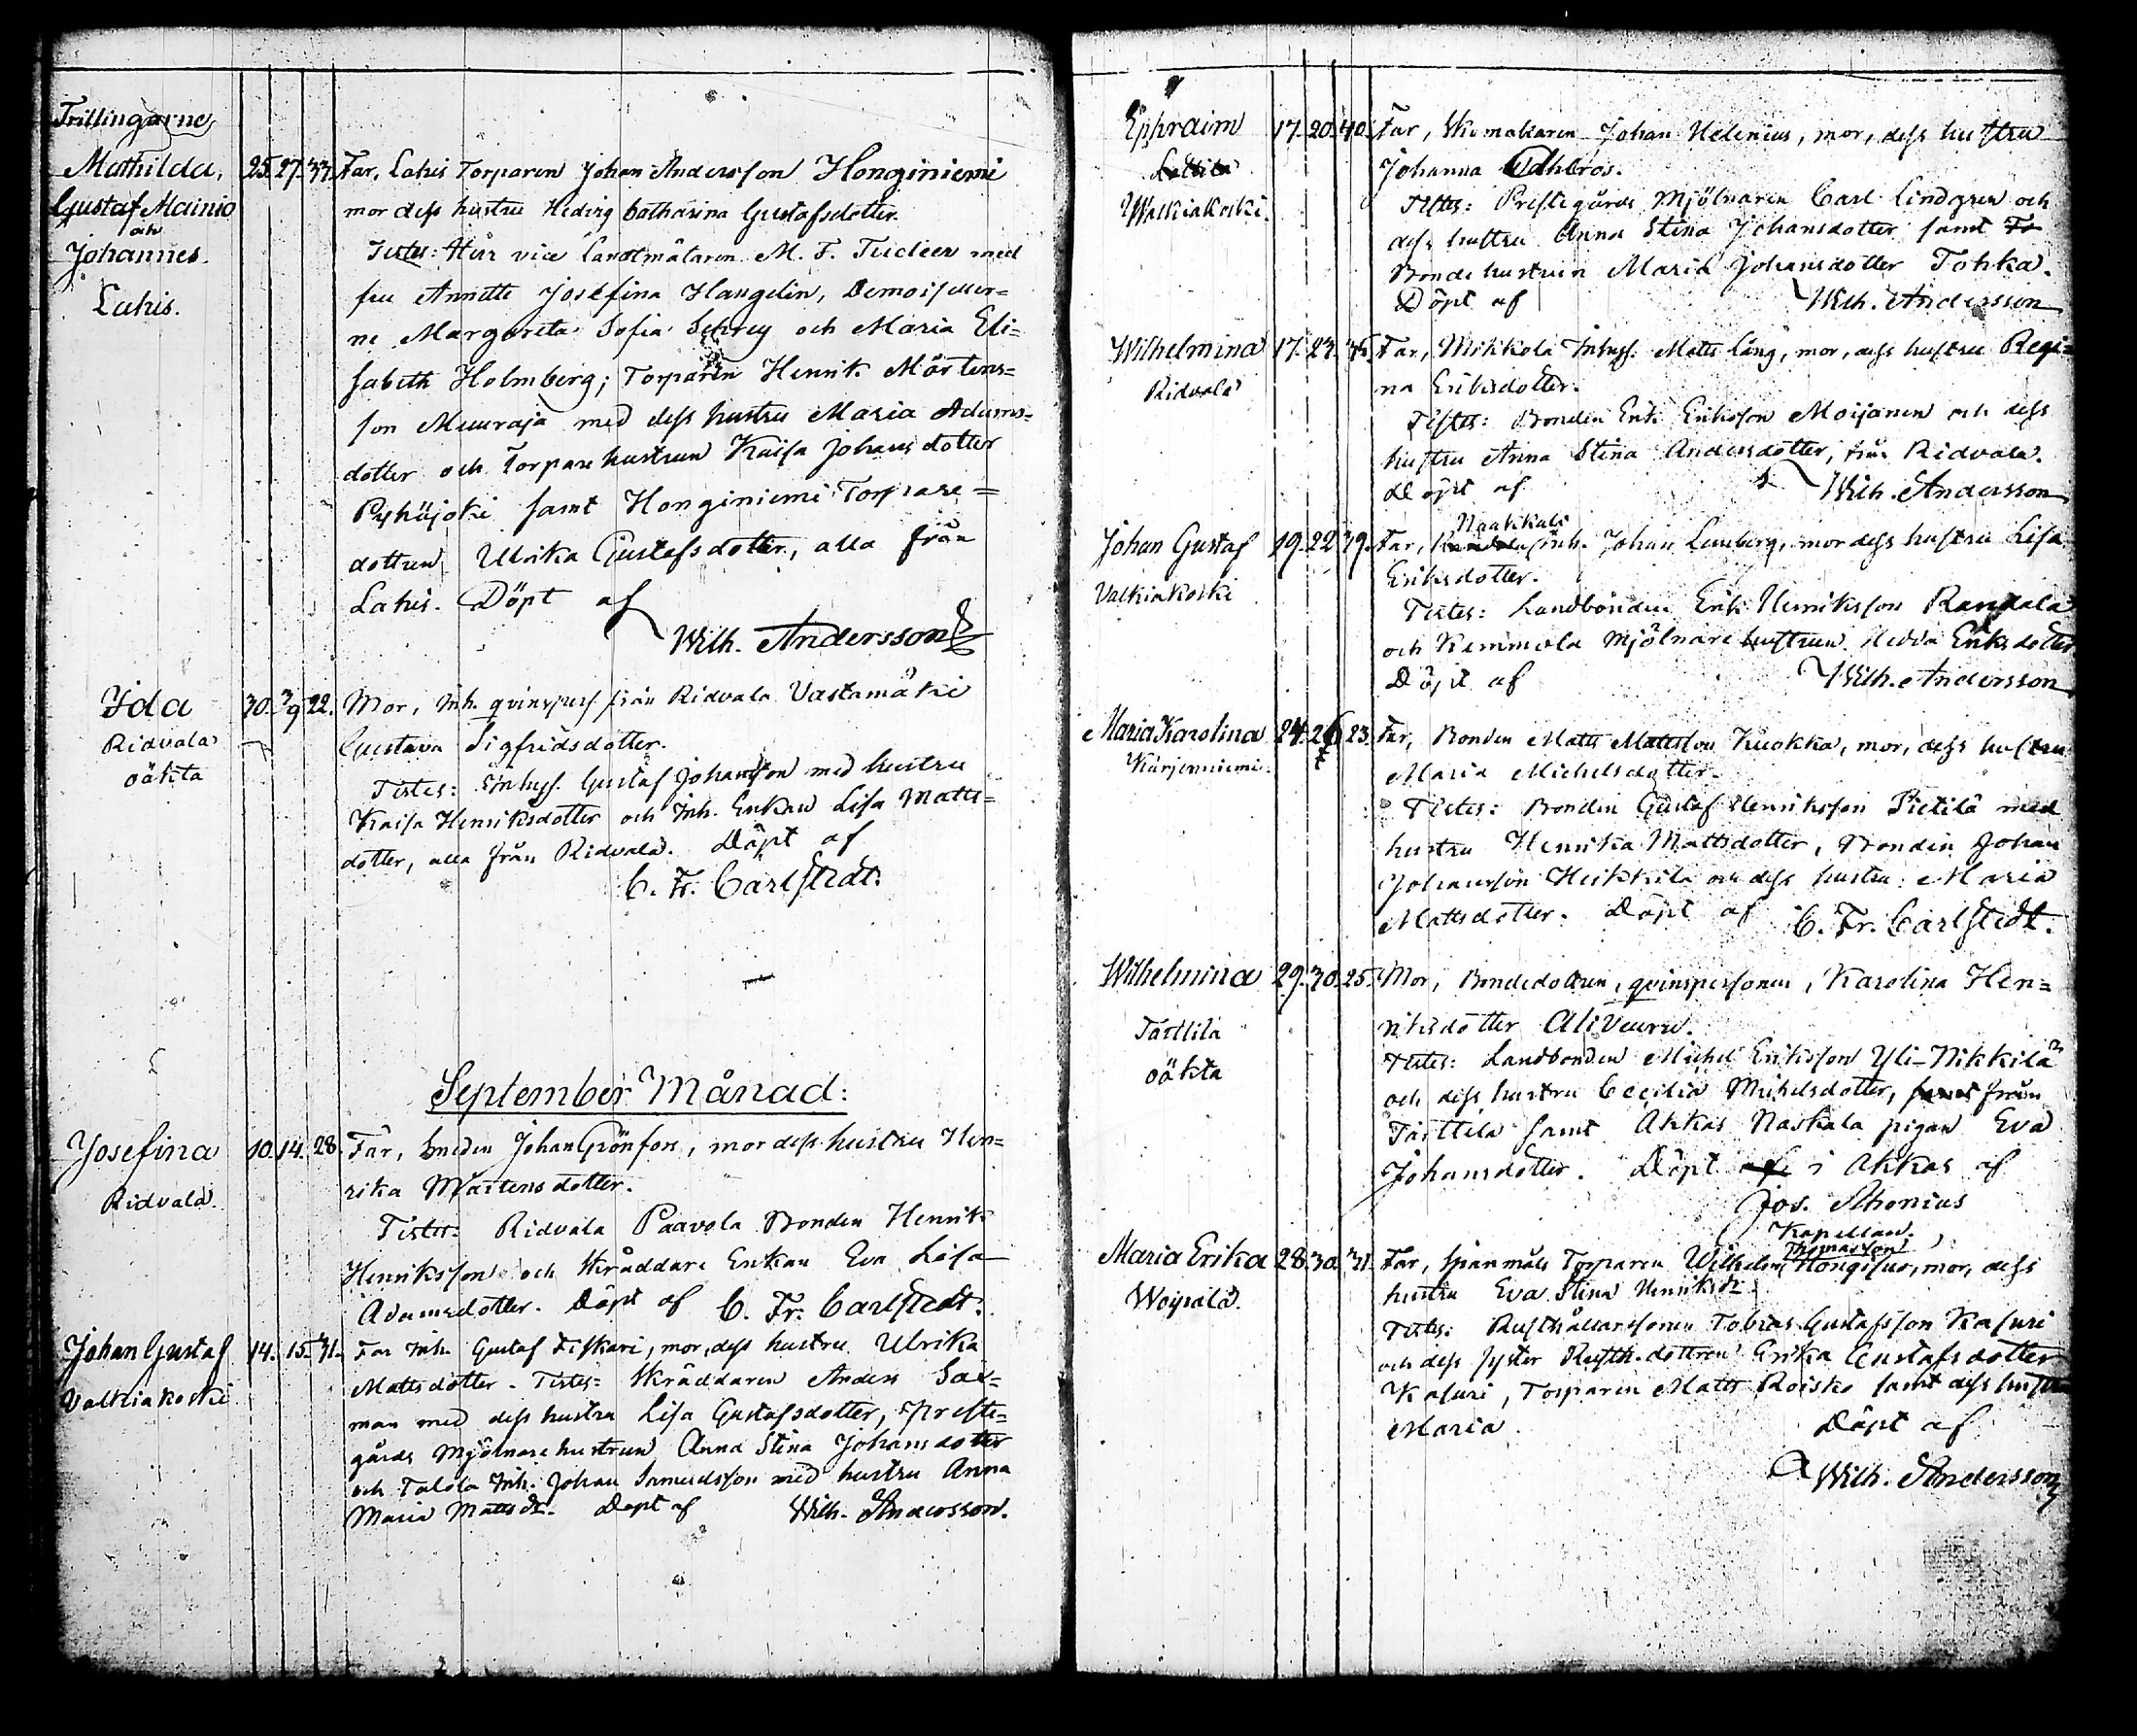 Trillingarne
Mathilda, 25. 27. 33. Far, Lahis Torparen Johan Andersson Honginiemi
Gustaf Mainio mor dess hustru Hedvig Catharina Gustafsdotter.
och
Johannes. Testes: Herr vice Landtmätaren M. F. Tudeer med
Lahis. fru Annette Josefina Hangelin, Demoiseller=
ne Margareta Sofia Schrey och Maria Eli=
sabeth Holmberg; Torparen Henrik Mårtens=
son Muuraja med dess hustru Maria Adams=
dotter och Torpare hustrun Kaisa Johansdotter
Pyhäjoki samt Honginiemi Torpare=
dottren Ulrika Gustafsdotter, alla från
Lahis. Döpt af
Wilh. Andersson
Ida 30. 3/9 22. Mor, Inh. qvinspers. från Ridvala Vastamäki
Ridvala Gustava Sigfridsdotter.
oäkta Testes: Inhyss. Gustaf Johansson med hustru
Kaisa Henriksdotter och Inh. Enkan Lisa Matts=
dotter, alla från Ridvala. Döpt af
C. Fr. Carlstedt.
September Månad:
Josefina 10. 14. 28. Far, Smeden Johan Grönfors, mor dess hustru Hen=
Ridvala. rika Mårtensdotter.
Testes: Ridvala Paavola Bonden Henrik
Henriksson och Skräddare Enkan Eva Lisa
Adamsdotter. Döpt af C. Fr. Carlstedt.
Johan Gustaf 14. 15. 31. Far Inh. Gustaf Fiskari, mor, dess hustru Ulrika
Valkiakoski Mattsdotter. Testes: Skräddaren Anders
man med dess hustru Lisa Gustafsdotter, Preste=
gårds Mjölnare hustrun Anna Stina Johansdotter
och Talola Inh. Johan Samuelsson med hustru Anna
Maria Mattsdr. Döpt af Wilh. Andersson.
Ephraim 17. 20. 40. Far, Skomakaren Johan Helenius, mor, dess hustru
Johanna Dahlros.
Walkiakoski. Testes: Prestegårds Mjölnaren Carl Lindgren och
dess hustru Anna Stina Johansdotter samt To
Bonde hustrun Maria Johansdotter Tohka.
Döpt af Wilh. Andersson
Wilhelmina 17. 23. Far, Mikkola Inhyss. Matts Lång, mor, dess hustru Regi=
Ridvala na Eriksdotter.
Testes: Bonden Erik Eriksson Moijanen och dess
hustru Anna Stina Andersdotter, från Ridvala.
Döpt af Wilh. Andersson
Naakkala
Johan Gustaf 19. 22. 39. Far, Inh. Johan Lemberg, mor dess hustru Lisa
Valkiakoski Eriksdotter.
Testes: Landbonden Erik Henriksson Randala
och Kemmola Mjölnare hustrun Hedda Eriksdotter
Döpt af Wilh. Andersson
Maria Karolina 24. 26 23. Far, Bonden Matts Mattsson Kuokka, mor, dess hustru
Kärjenniemi. Maria Michelsdotter.
Testes: Bonden Gustaf Henriksson Pietilä med
hustru Henrika Mattsdotter, Bonden Johan
Johansson Heikkilä och dess hustru Maria
Mattsdotter. Döpt af C. Fr. Carlstedt.
Wilhelmina 29. 30. 25. Mor, Bondedottren, qvinspersonen, Karolina Hen=
Tarttila riksdotter Alivuura.
oäkta Testes: Landbonden Michel Eriksson Yli-Nikkilä
och dess hustru Cecilia Mickelsdotter, samt från
Tarttila samt Akkas Naskala pigan Eva
Johansdotter. Döpt af i Akkas af
Jos. Ahonius
Kapellan.
Thomasson
Maria Erika 28. 30. 31. Far, Spanmåls Torparen Wilhelm Hongisuo, mor, dess
Woipala. hustru Eva Stina Henriksdr.
Testes: Rusthållarsonen Tobias Gustafsson Kasuri
och dess syster Rusth.dottren Erika Gustafsdotter
Kasuri, Torparen Matts Roisko samt dess hustru
Maria. Döpt af
Wilh. Andersson